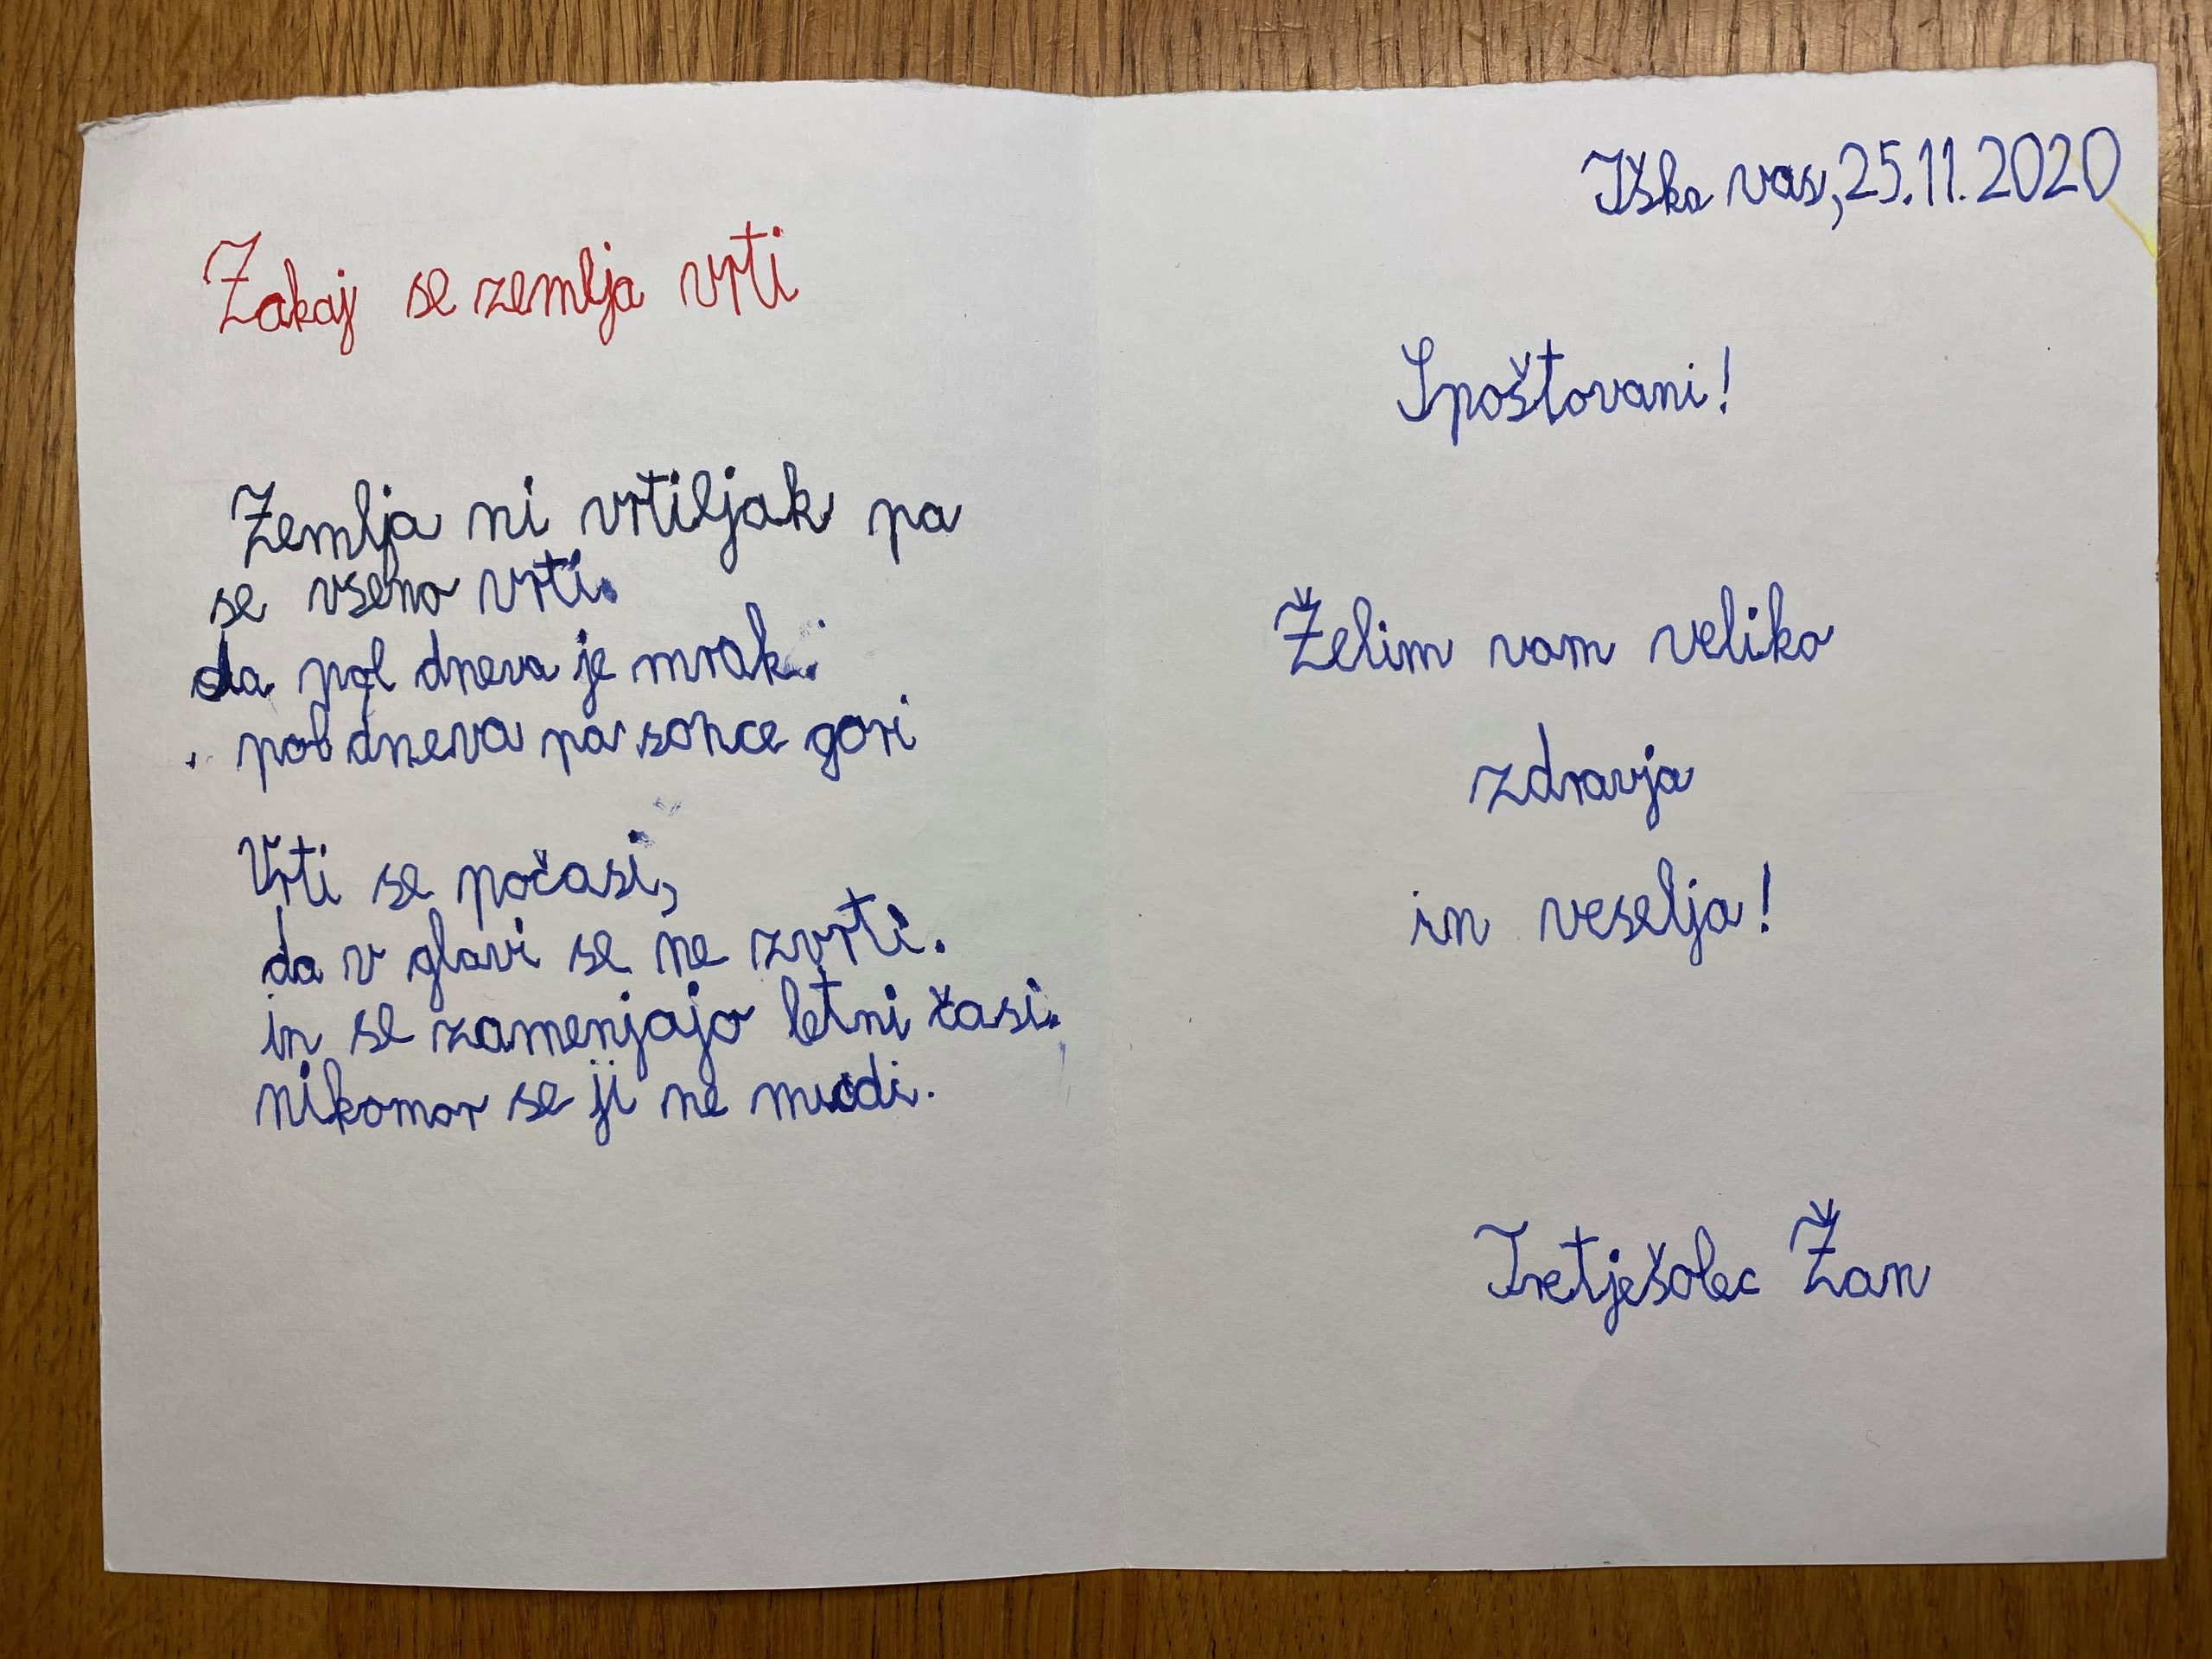 Zakaj se zemlja vrti
Zemlja ni vrtiljak pa
se vseno vrti.
da pol dneva je mrak.
pol dneva pa sonce gori
Vrti se počasi,
da v glavi se ne zvrti.
in se zamenjajo letni časi.
nikomor se ji ne mudi.
Iška vas, 25.11.2020
Spoštovani!
Želim vam veliko
zdravja
in veselja!
Tretješolec Žan